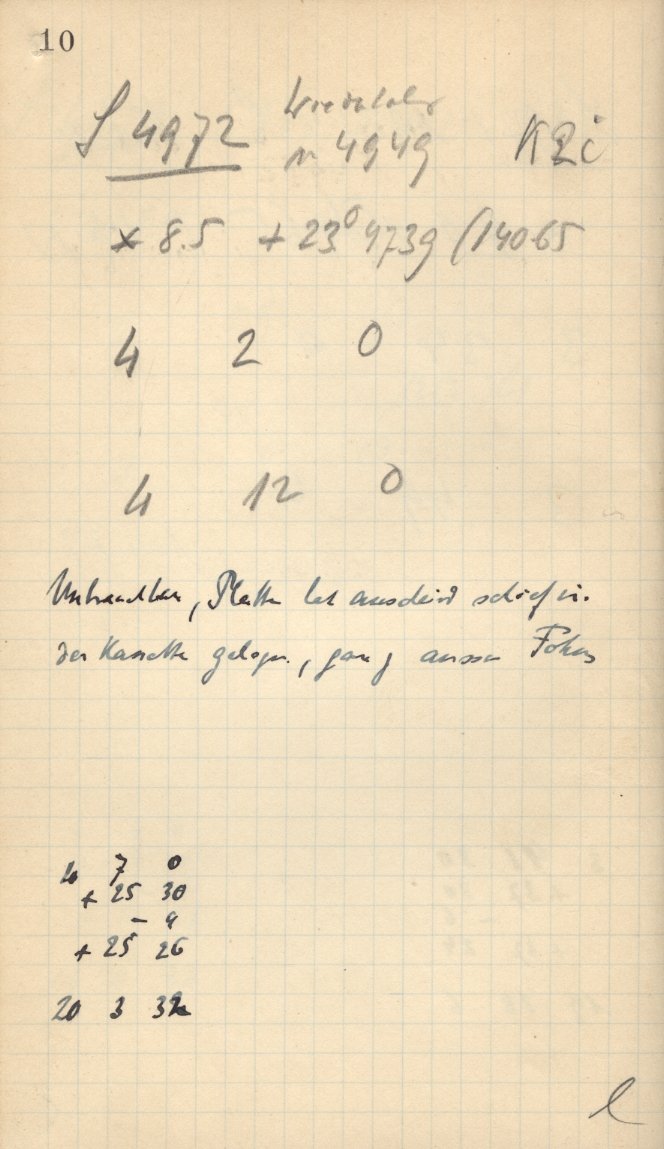 10
S 4972 Wiederholung
v. 4949
× 8.5 + 23° 4739 (14065
4 2 0
4 12 0
Unbrauchbar, Platte hat anscheind schief in
der Kassette gelegen, ganz ausser Fokus
4 7 0
+ 25 30
- 4
+ 25 26
20 3 32